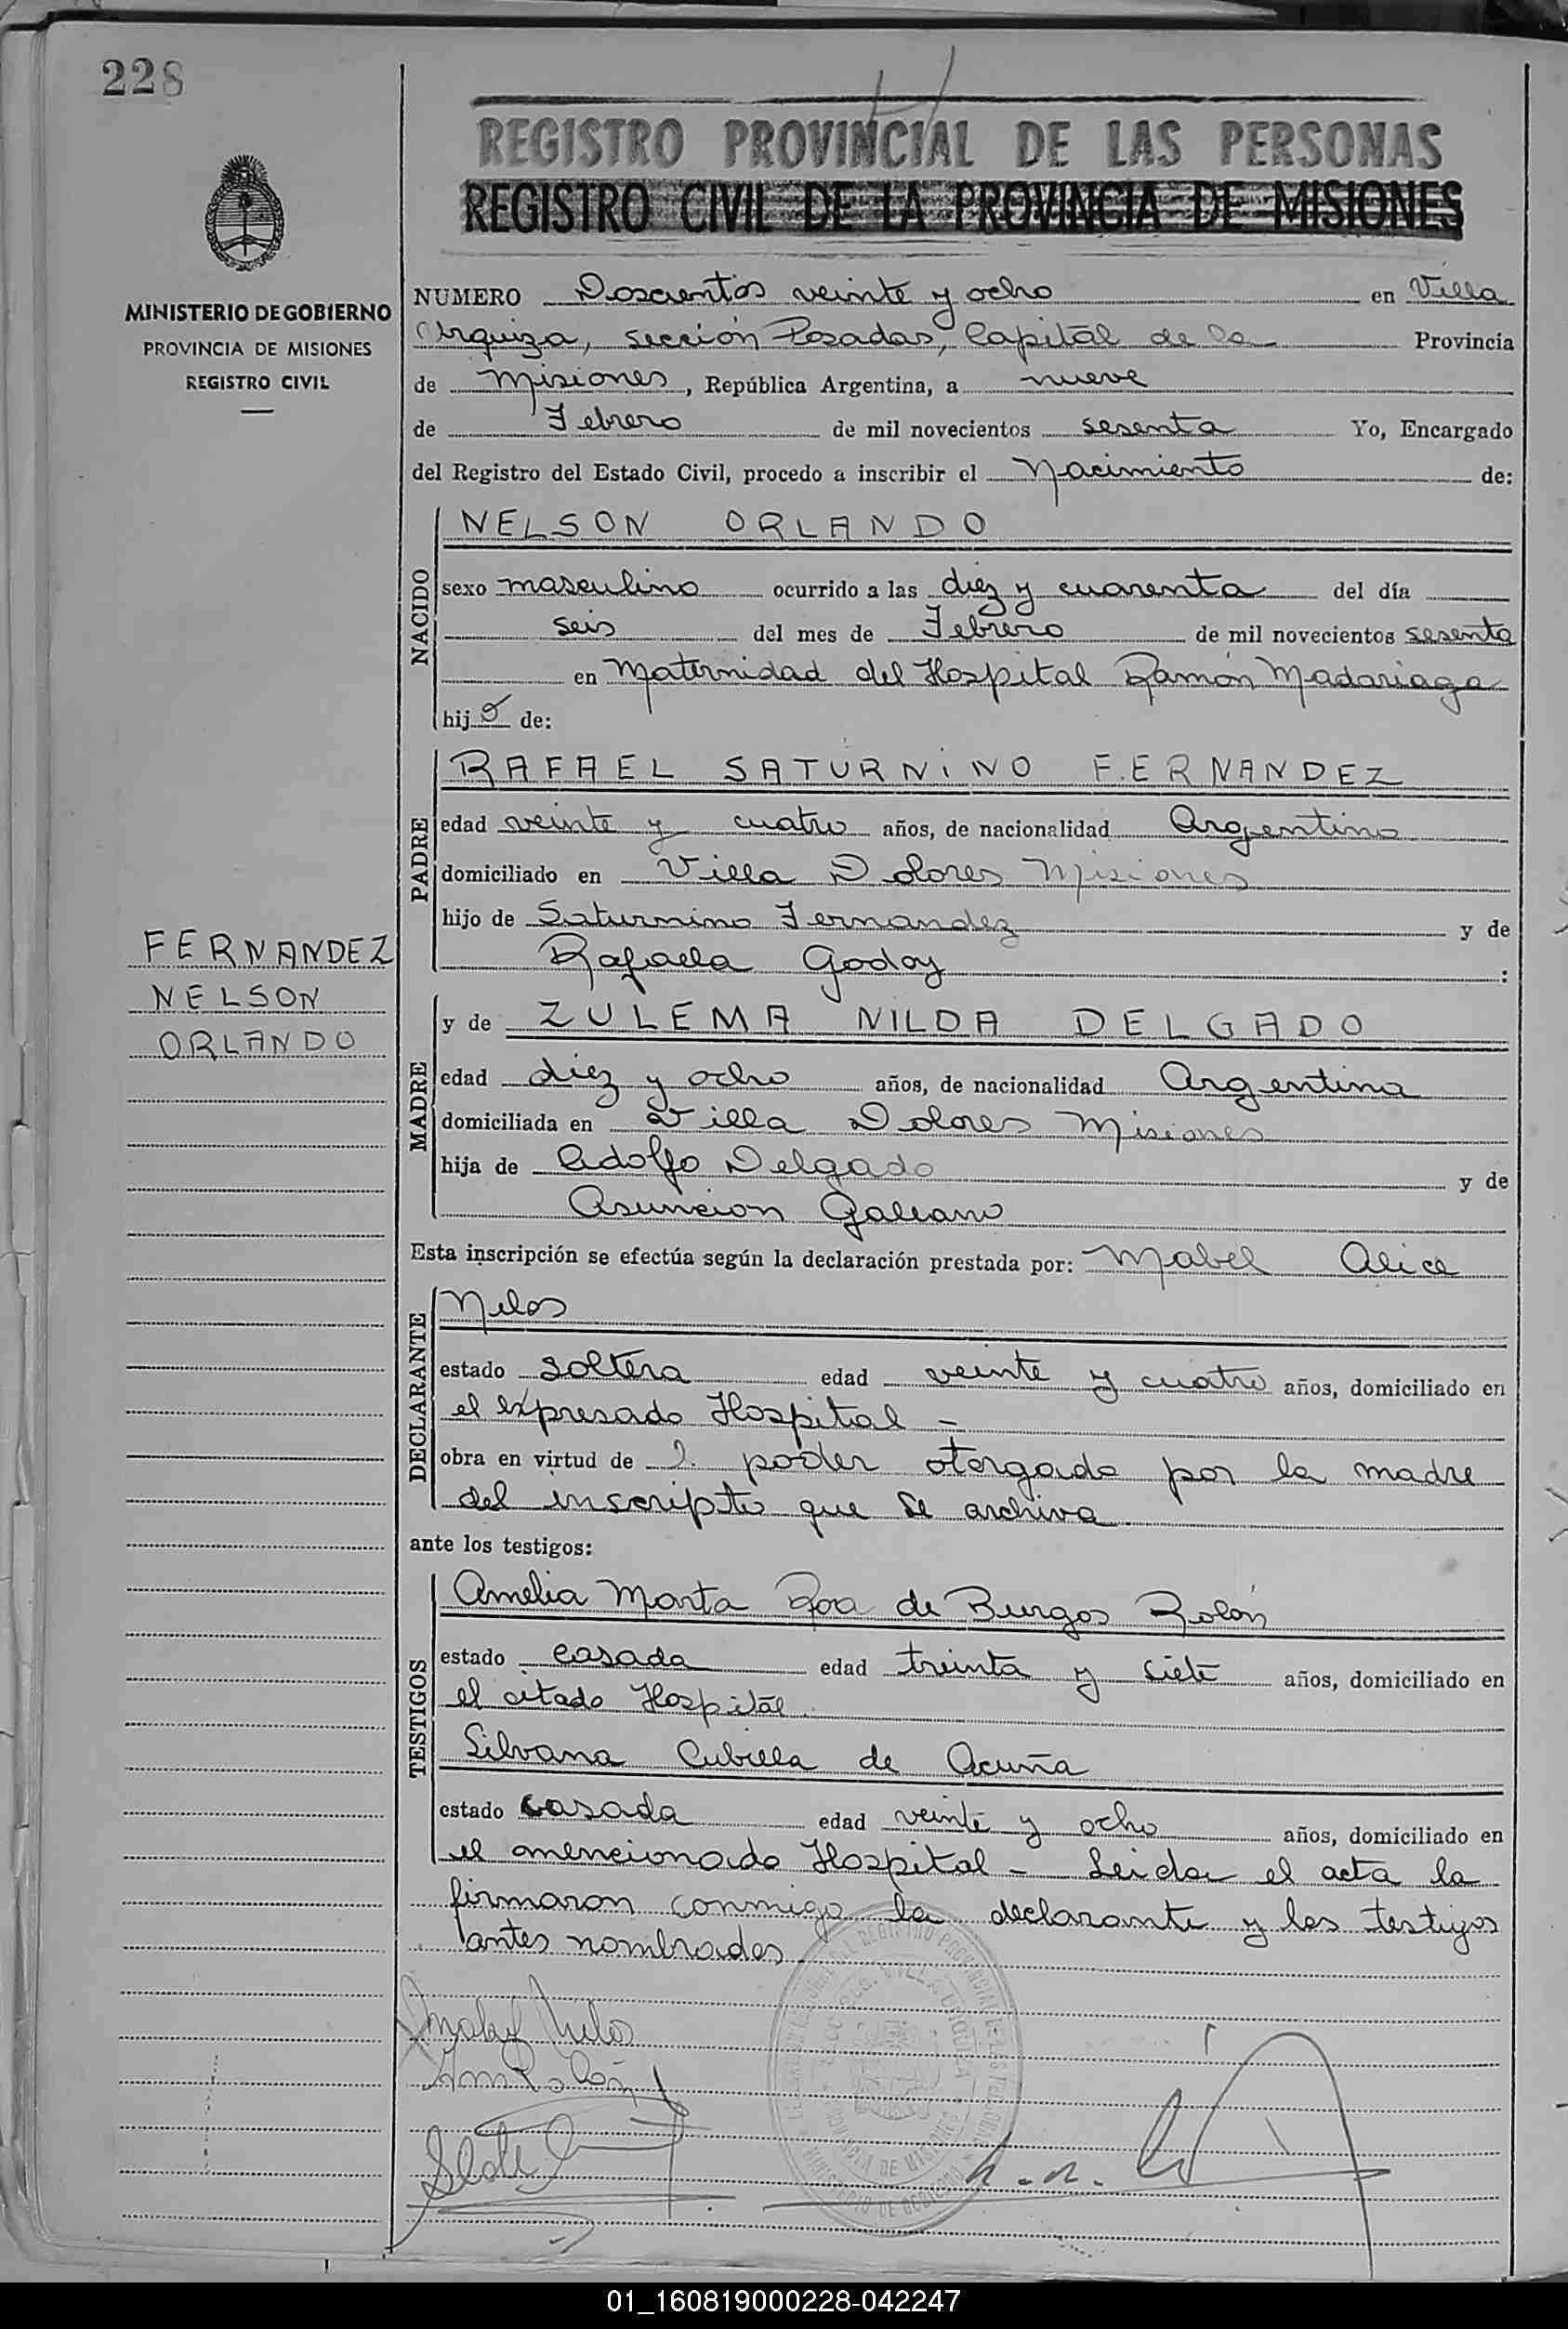 228
REGISTRO PROVINCIAL DE LAS PERSONAS
REGISTRO CIVIL DE LA PROVINCIA DE MISIONES
MINISTERIO DE GOBIERNO
PROVINCIA DE MISIONES
REGISTRO CIVIL
NUMERO Doscientos veinte y ocho en Villa
Urquiza, sección Posadas, Capital de la Provincia
de Misiones, República Argentina, a nueve
de Febrero de mil novecientos sesenta Yo, Encargado
del Registro del Estado Civil, procedo a inscribir el Nacimiento de:
NACIDO
NELSON ORLANDO
sexo masculino ocurrido a las diez y cuarenta del día
seis del mes de Febrero de mil novecientos sesenta
en Maternidad del Hospital Ramón Madariaga
hijo de:
PADRE
RAFAEL SATURNINO FERNANDEZ
edad veinte y cuatro años, de nacionalidad Argentino
domiciliado en Villa Dolores Misiones
hijo de Saturnino Fernandez y de
Rafaela Godoy :
FERNANDEZ
NELSON
ORLANDO
MADRE
y de ZULEMA NILDA DELGADO
edad diez y ocho años, de nacionalidad Argentina
domiciliada en Villa Dolores Misiones
hija de Adolfo Delgado y de
Asuncion Galeano
Esta inscripción se efectúa según la declaración prestada por: Mabel Alice
DECLARANTE
Melos
estado soltera edad veinte y cuatro años, domiciliado en
el expresado Hospital -
obra en virtud de poder otorgado por la madre
del inscripto que se archiva
ante los testigos:
TESTIGOS
Amelia Marta Roa de Burgos Rolón
estado casada edad treinta y siete años, domiciliado en
el citado Hospital.
Silvana Cubilla de Acuña
estado casada edad veinte y ocho años, domiciliado en
el mencionado Hospital - Leida el acta la
firmaron conmigo la declarante y los testigos
antes nombrados
01_160819000228-042247